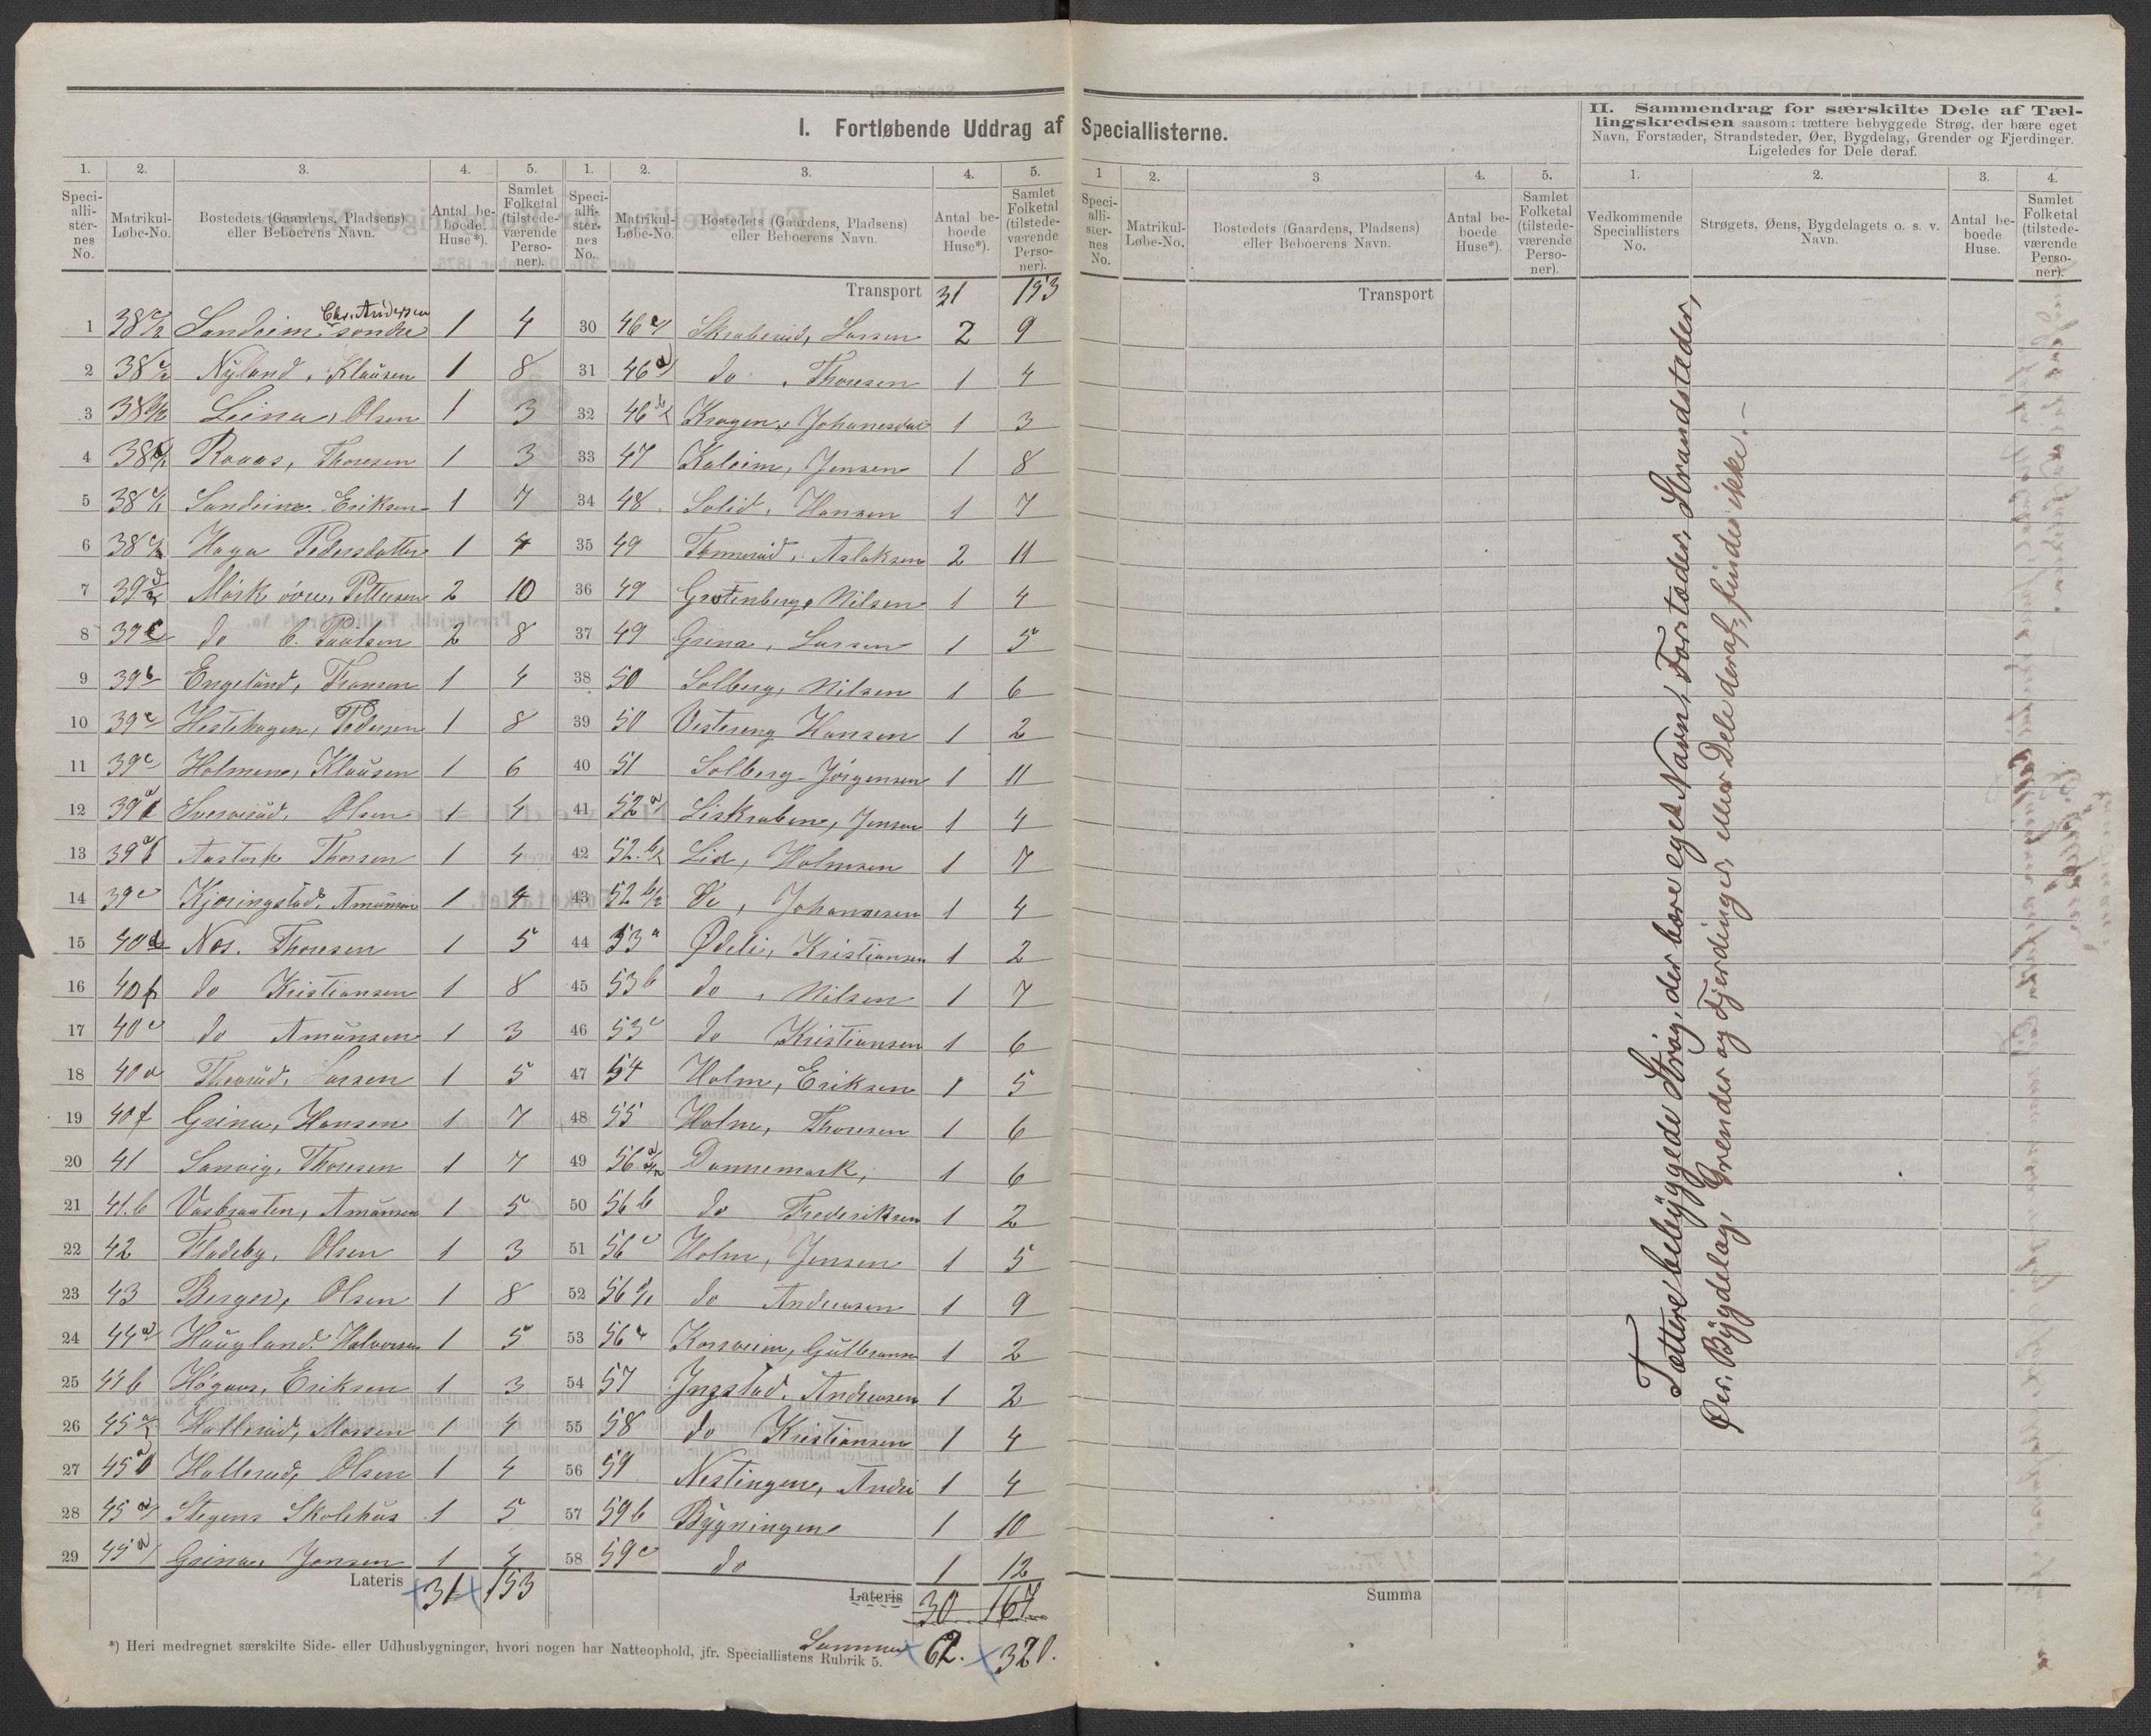 I. Fortløbende Uddrag af Speciallisterne.
1. Speciallisternes No. | 2. Matrikul-Løbe-No. | 3. Bostedets (Gaardens, Pladsens) eller Beboerens Navn. | 4. Antal beboede Huse*). | 5. Samlet Folketal (tilstedeværende Personer).
1 38 Sandeim søndre Chr. Andersen 1 4
2 38 Nyland, Klausen 1 8
3 38 Leina, Olsen 1 3
4 38 Raaas, Thoresen 1 3
5 38 Sandeim Eriksen 1 7
6 38 Haga Pedersdatter 1 4
7 39 Mørk øvre, Pettersen 2 10
8 39 do C. Paulsen 2 8
9 39b Engelund, Fransen 1 4
10 39c Hestehagen, Pedersen 1 8
11 39c Holmene, Klausen 1 6
12 39 Sverserud, Olsen 1 4
13 39 Aastorp Thorsen 1 4
14 39c Kjæringstad, Amunsen 1 4
15 40d Nes. Thoresen 1 5
16 40 do Kristiansen 1 8
17 40c do Amunsen 1 3
18 40a Larsen 1 5
19 40f Grina, Hansen 1 7
20 41 Sanvig, Thoresen 1 7
21 41.b Vasbraaten, Amunsen 1 5
22 42 Fladeby, Olsen 1 3
23 43 Berger, Olsen 1 8
24 44a Haugland. Halvorsen 1 5
25 44b Høgaas, Eriksen 1 3
26 45a Hallerud, Morsen 1 4
27 45a Hallerud, Olsen 1 4
28 45a Stegens Skolehus 1 5
29 45a Grina, Jansen 1 4
Lateris 31 153
Transport 31 153
30 46 Skraberud, Larsen 2 9
31 46a do, Thoresen 1 4
32 46 Kragen, Johanesdat 1 3
33 47 Kaleim, Jensen 1 8
34 48 Solid, Hansen 1 7
35 49 Tømmerud, Aslaksen 2 11
36 49 Grotenberg, Nilsen 1 4
37 49 Grina, Larsen 1 5
38 50 Solberg, Nilsen 1 6
39 50 Vestereng Hansen 1 2
40 51 Solberg Jørgensen 1 11
41 52a Liskrabene, Jensen 1 4
42 52.b Lia, Holmsen 1 7
43 52 b/2 Øe, Johannesen 1 4
44 53a Ødelie, Kristiansen 1 2
45 53b do, Nilsen 1 7
46 53c do Kristiansen 1 6
47 54 Holm, Eriksen 1 5
48 55 Holm, Thoresen 1 6
49 56.a Dannemark, 1 6
50 56b do Frederiksen 1 2
51 56c Holm, Jensen 1 5
52 56 do Andreasen 1 9
53 56 Korsveien, Gulbransen 1 2
54 57 Ingstad, Andreasen 1 2
55 58 do Kristiansen 1 4
56 59 Nestingen, Andr 1 4
57 59b Bygningen 1 10
58 59c do 1 12
Lateris 30 167
Summa 62. 320.
*) Heri medregnet særskilte Side- eller Udhusbygninger, hvori nogen har Natteophold, jfr. Speciallistens Rubrik 5.
1 Speciallisternes No. | 2. Matrikul-Løbe-No. | 3. Bostedets (Gaardens, Pladsens) eller Beboerens Navn. | 4. Antal beboede Huse*). | 5. Samlet Folketal (tilstedeværende Personer).
Transport
Summa
II. Sammendrag for særskilte Dele af Tællingskredsen saasom: tættere bebyggede Strøg, der bære eget
Navn, Forstæder, Strandsteder, Øer, Bygdelag, Grender og Fjerdinger.
Ligeledes for Dele deraf.
1. Vedkommende Speciallisters No. | 2. Strøgets, Øens, Bygdelagets o. s. v. Navn. | 3. Antal beboede Huse. | 4. Samlet Folketal (tilstedeværende Personer).
Tættere bebyggede Strøg, der bære eget Navn, Forstæder, Strandstæder,
Øer, Bygdelag, Grender og Fjerdinger eller Dele deraf, findes ikke. –